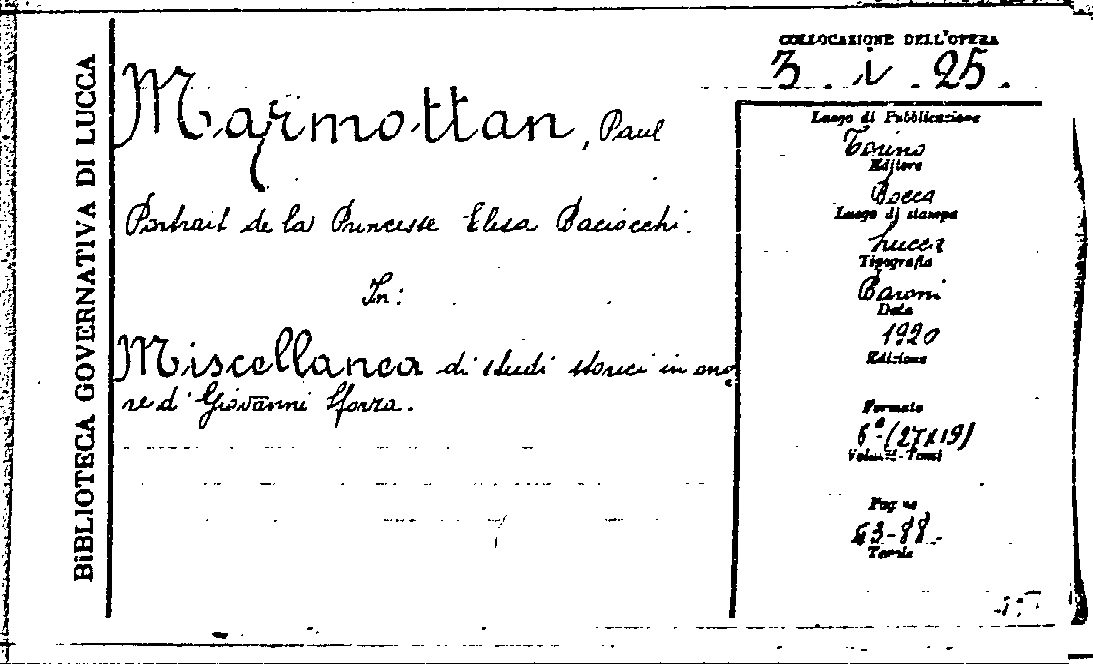 BIBLIOTECA GOVERNATIVA DI LUCCA
COLLOCAZIONE DELL'OPERA
3. . 25.
Marmottan, Paul
Portrait de la Princesse Elisa Baciocchi.
In:
Miscellanea di studi storici in ono
re di Giovanni Sforza.
Luogo di Pubblicazione
Torino
Editore
Bocca
Luogo di stampa
Lucca
Tipografia
Baroni
Data
1920
Edizione
Formato
(27x19)
Volumi-Tomi
Pagine
-88
Tavole